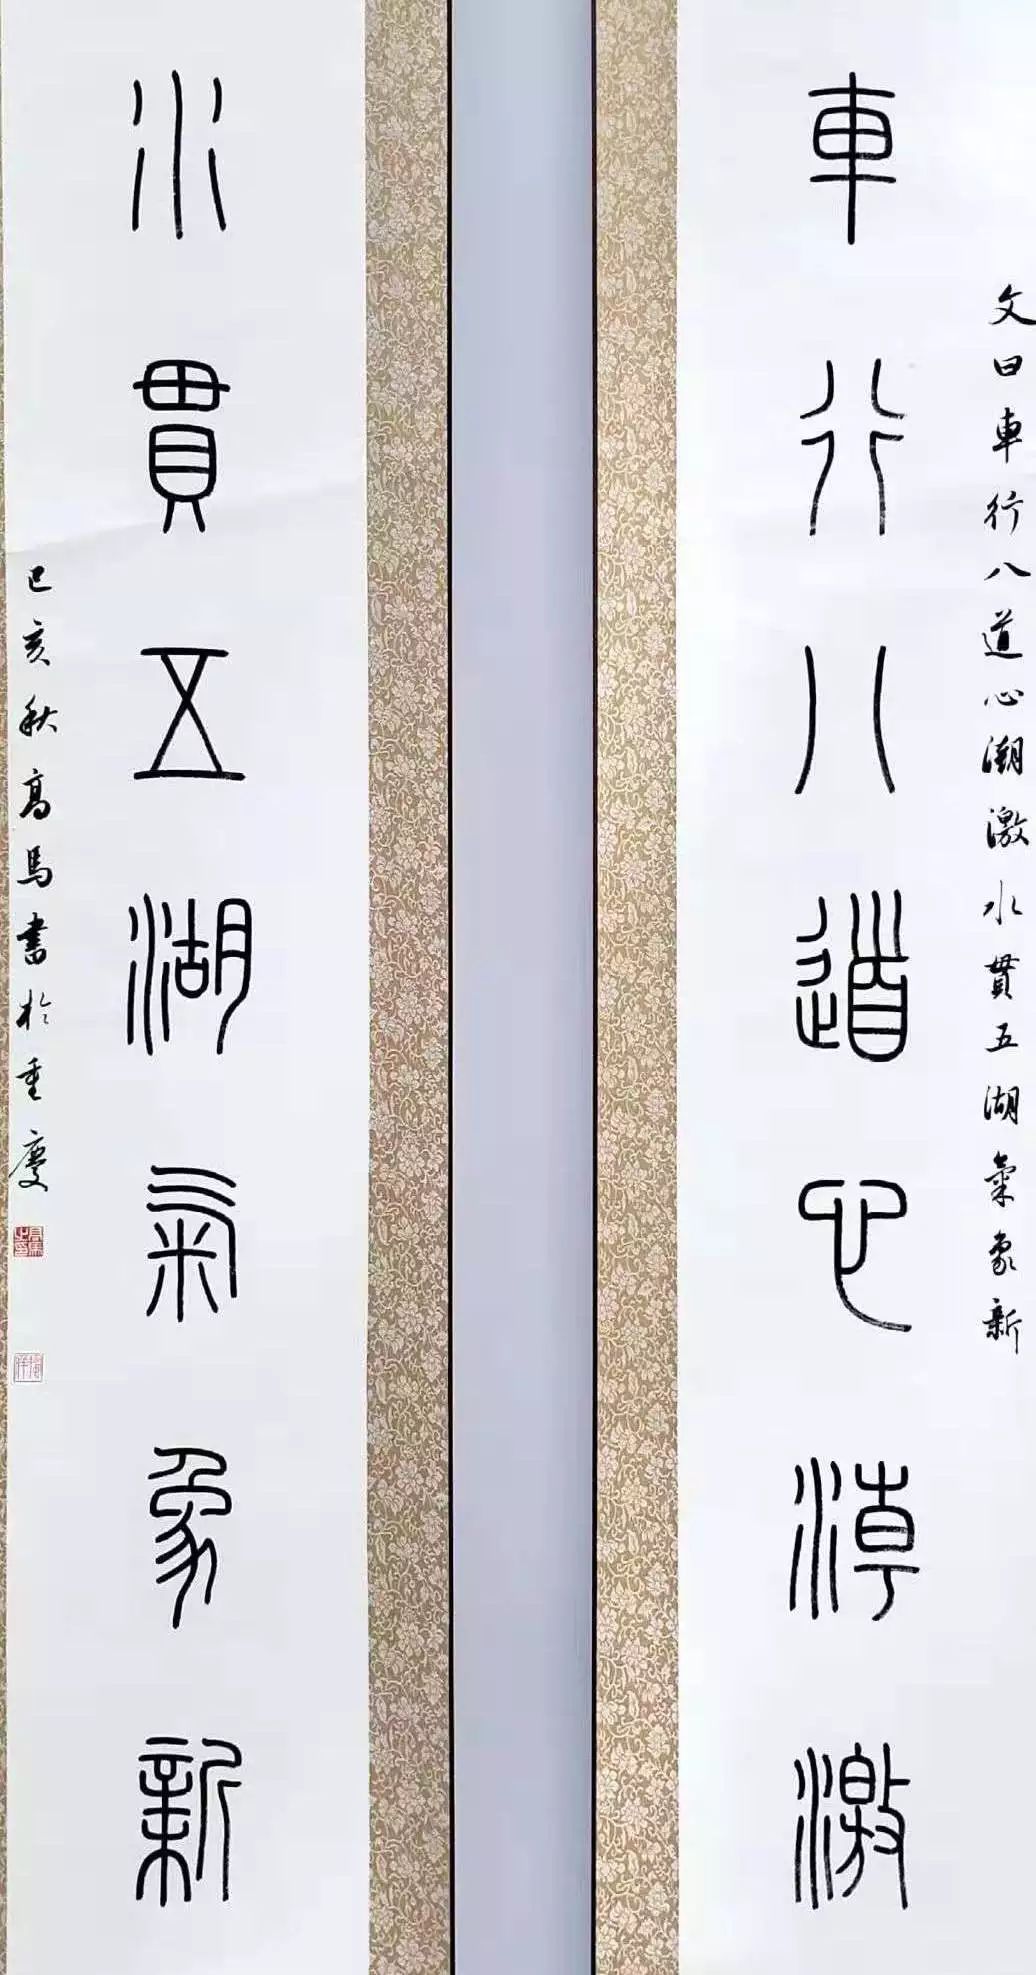 文曰車行八道心潮激水貫五湖氣象新
車行八道心潮激
水貫五湖氣象新
己亥秋高馬書於重慶